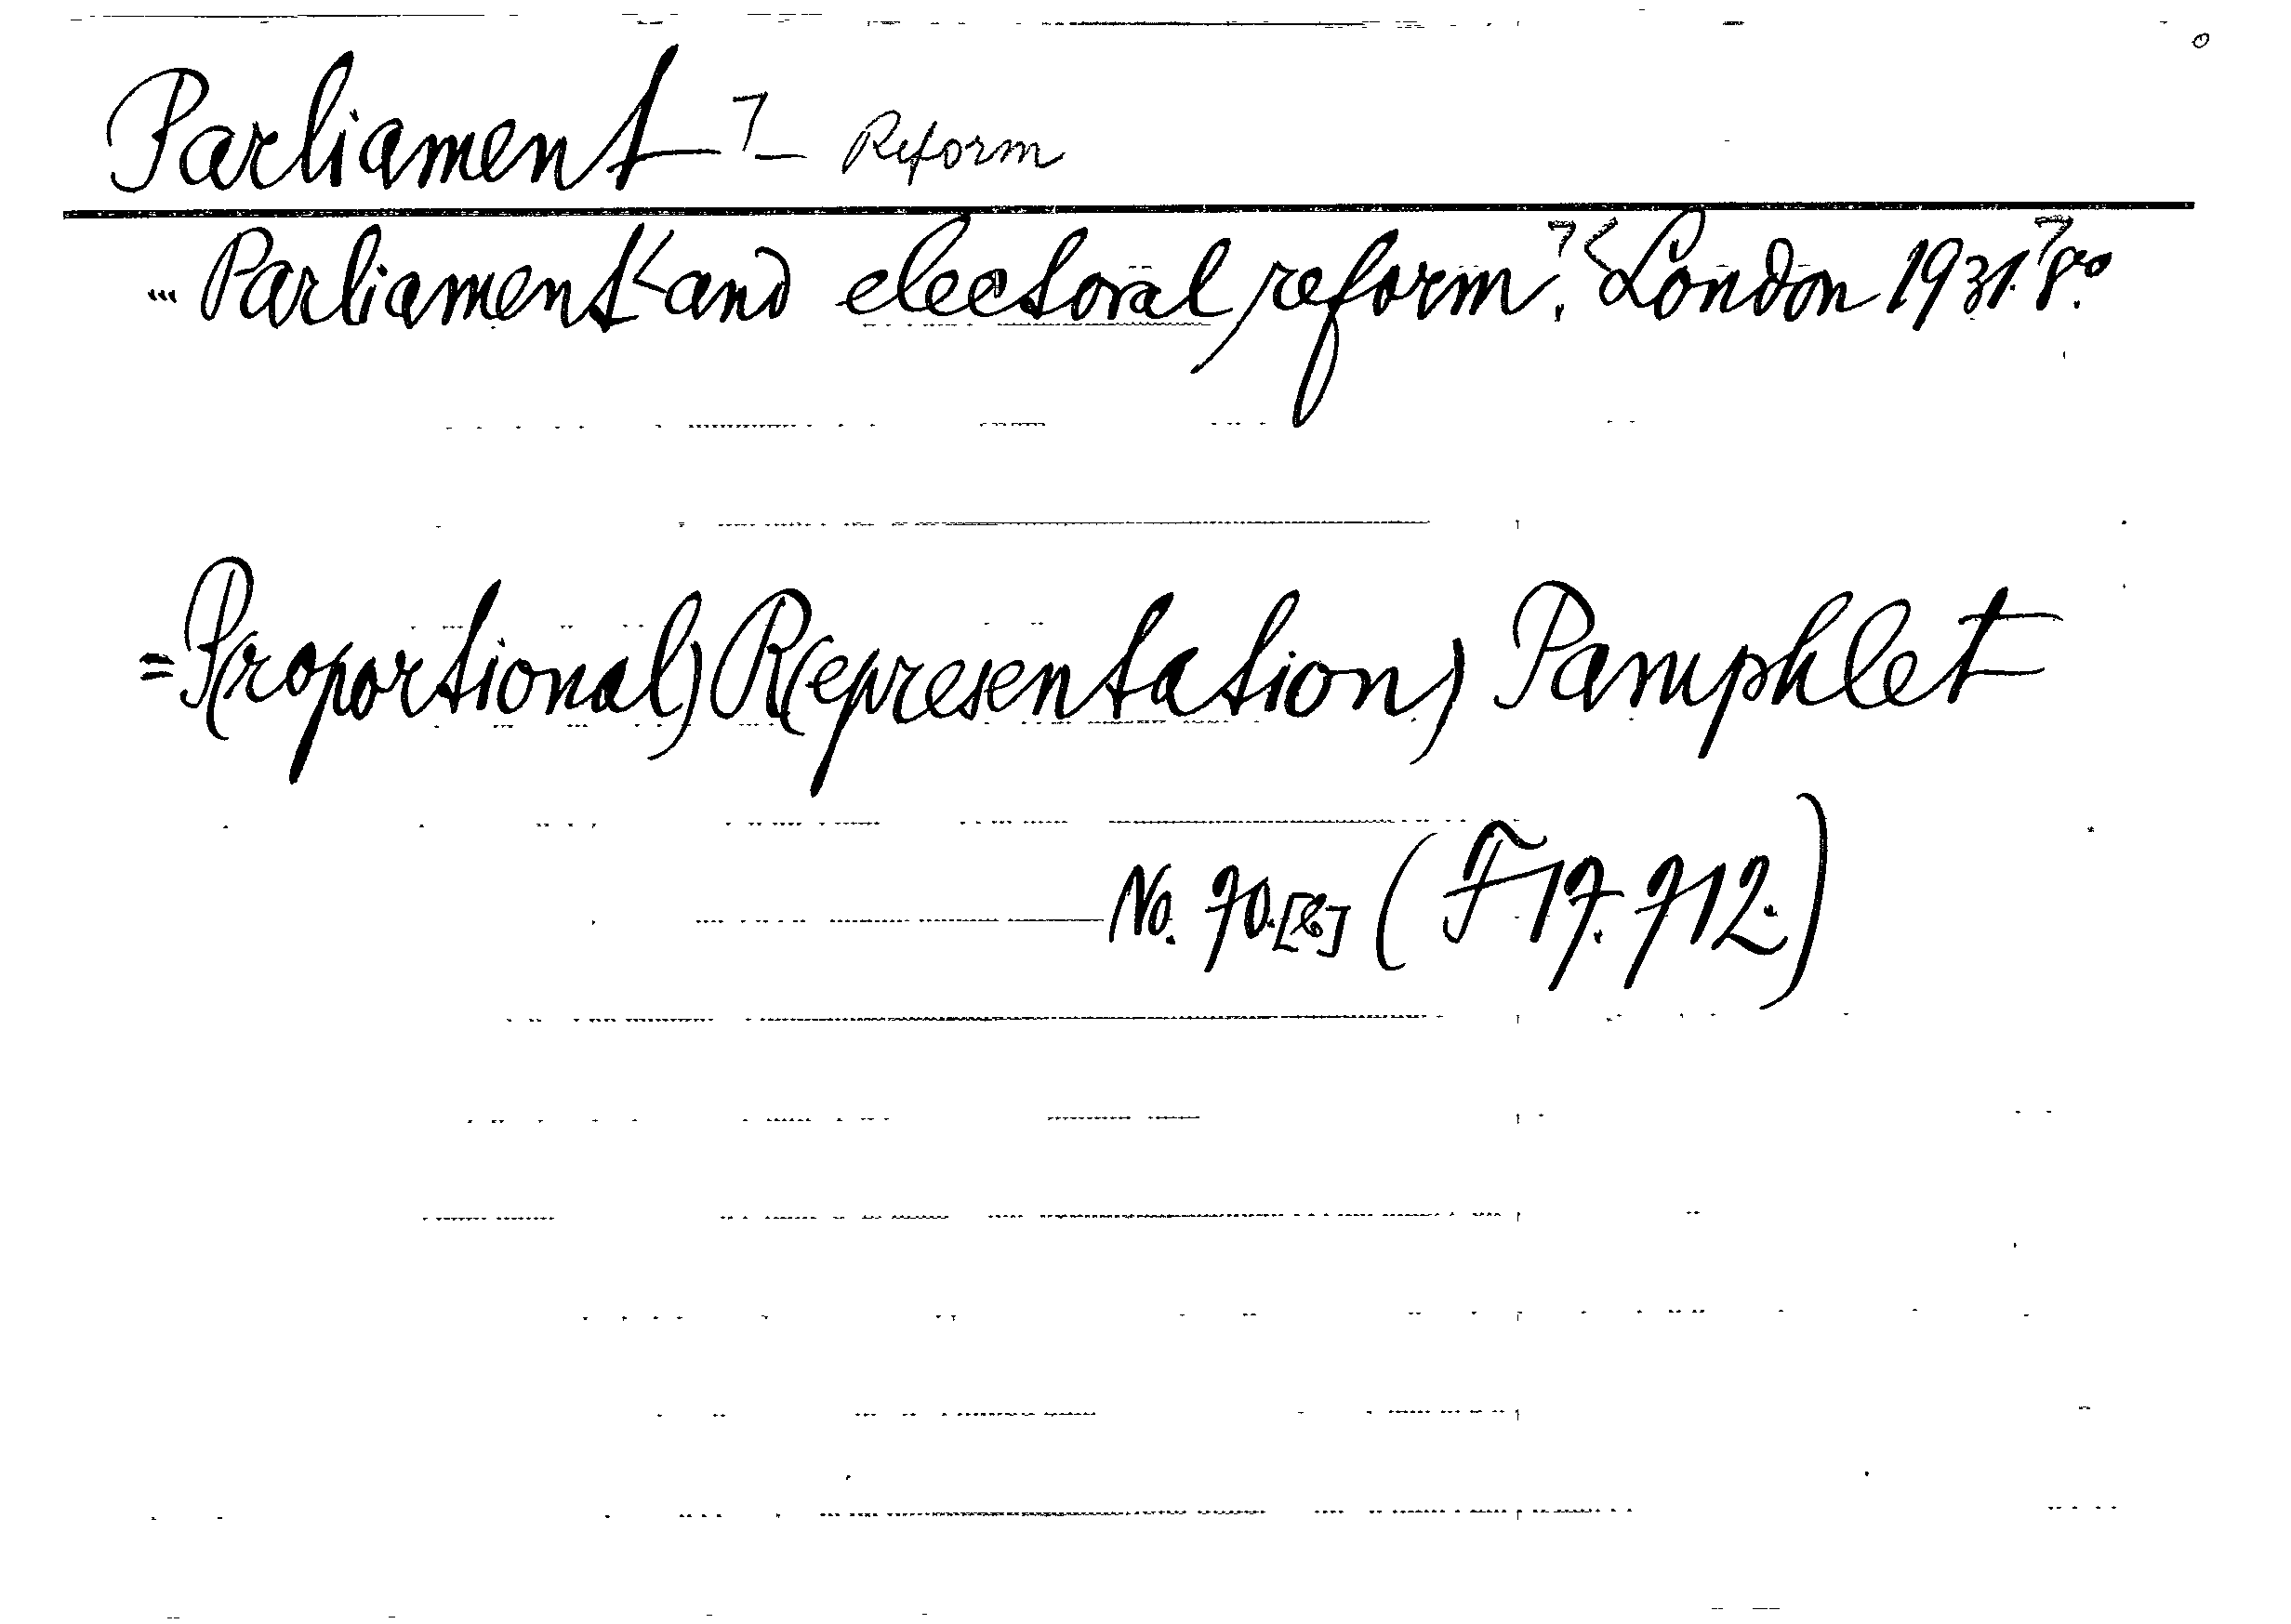 Parliament ⁊ — Reform
... Parliament < and electoral reform. ⁊ < London 1931. ⁊ 8.°
= P(roportional) R(epresentation) Pamphlet
No. 70.[b] (F 17. 712.)